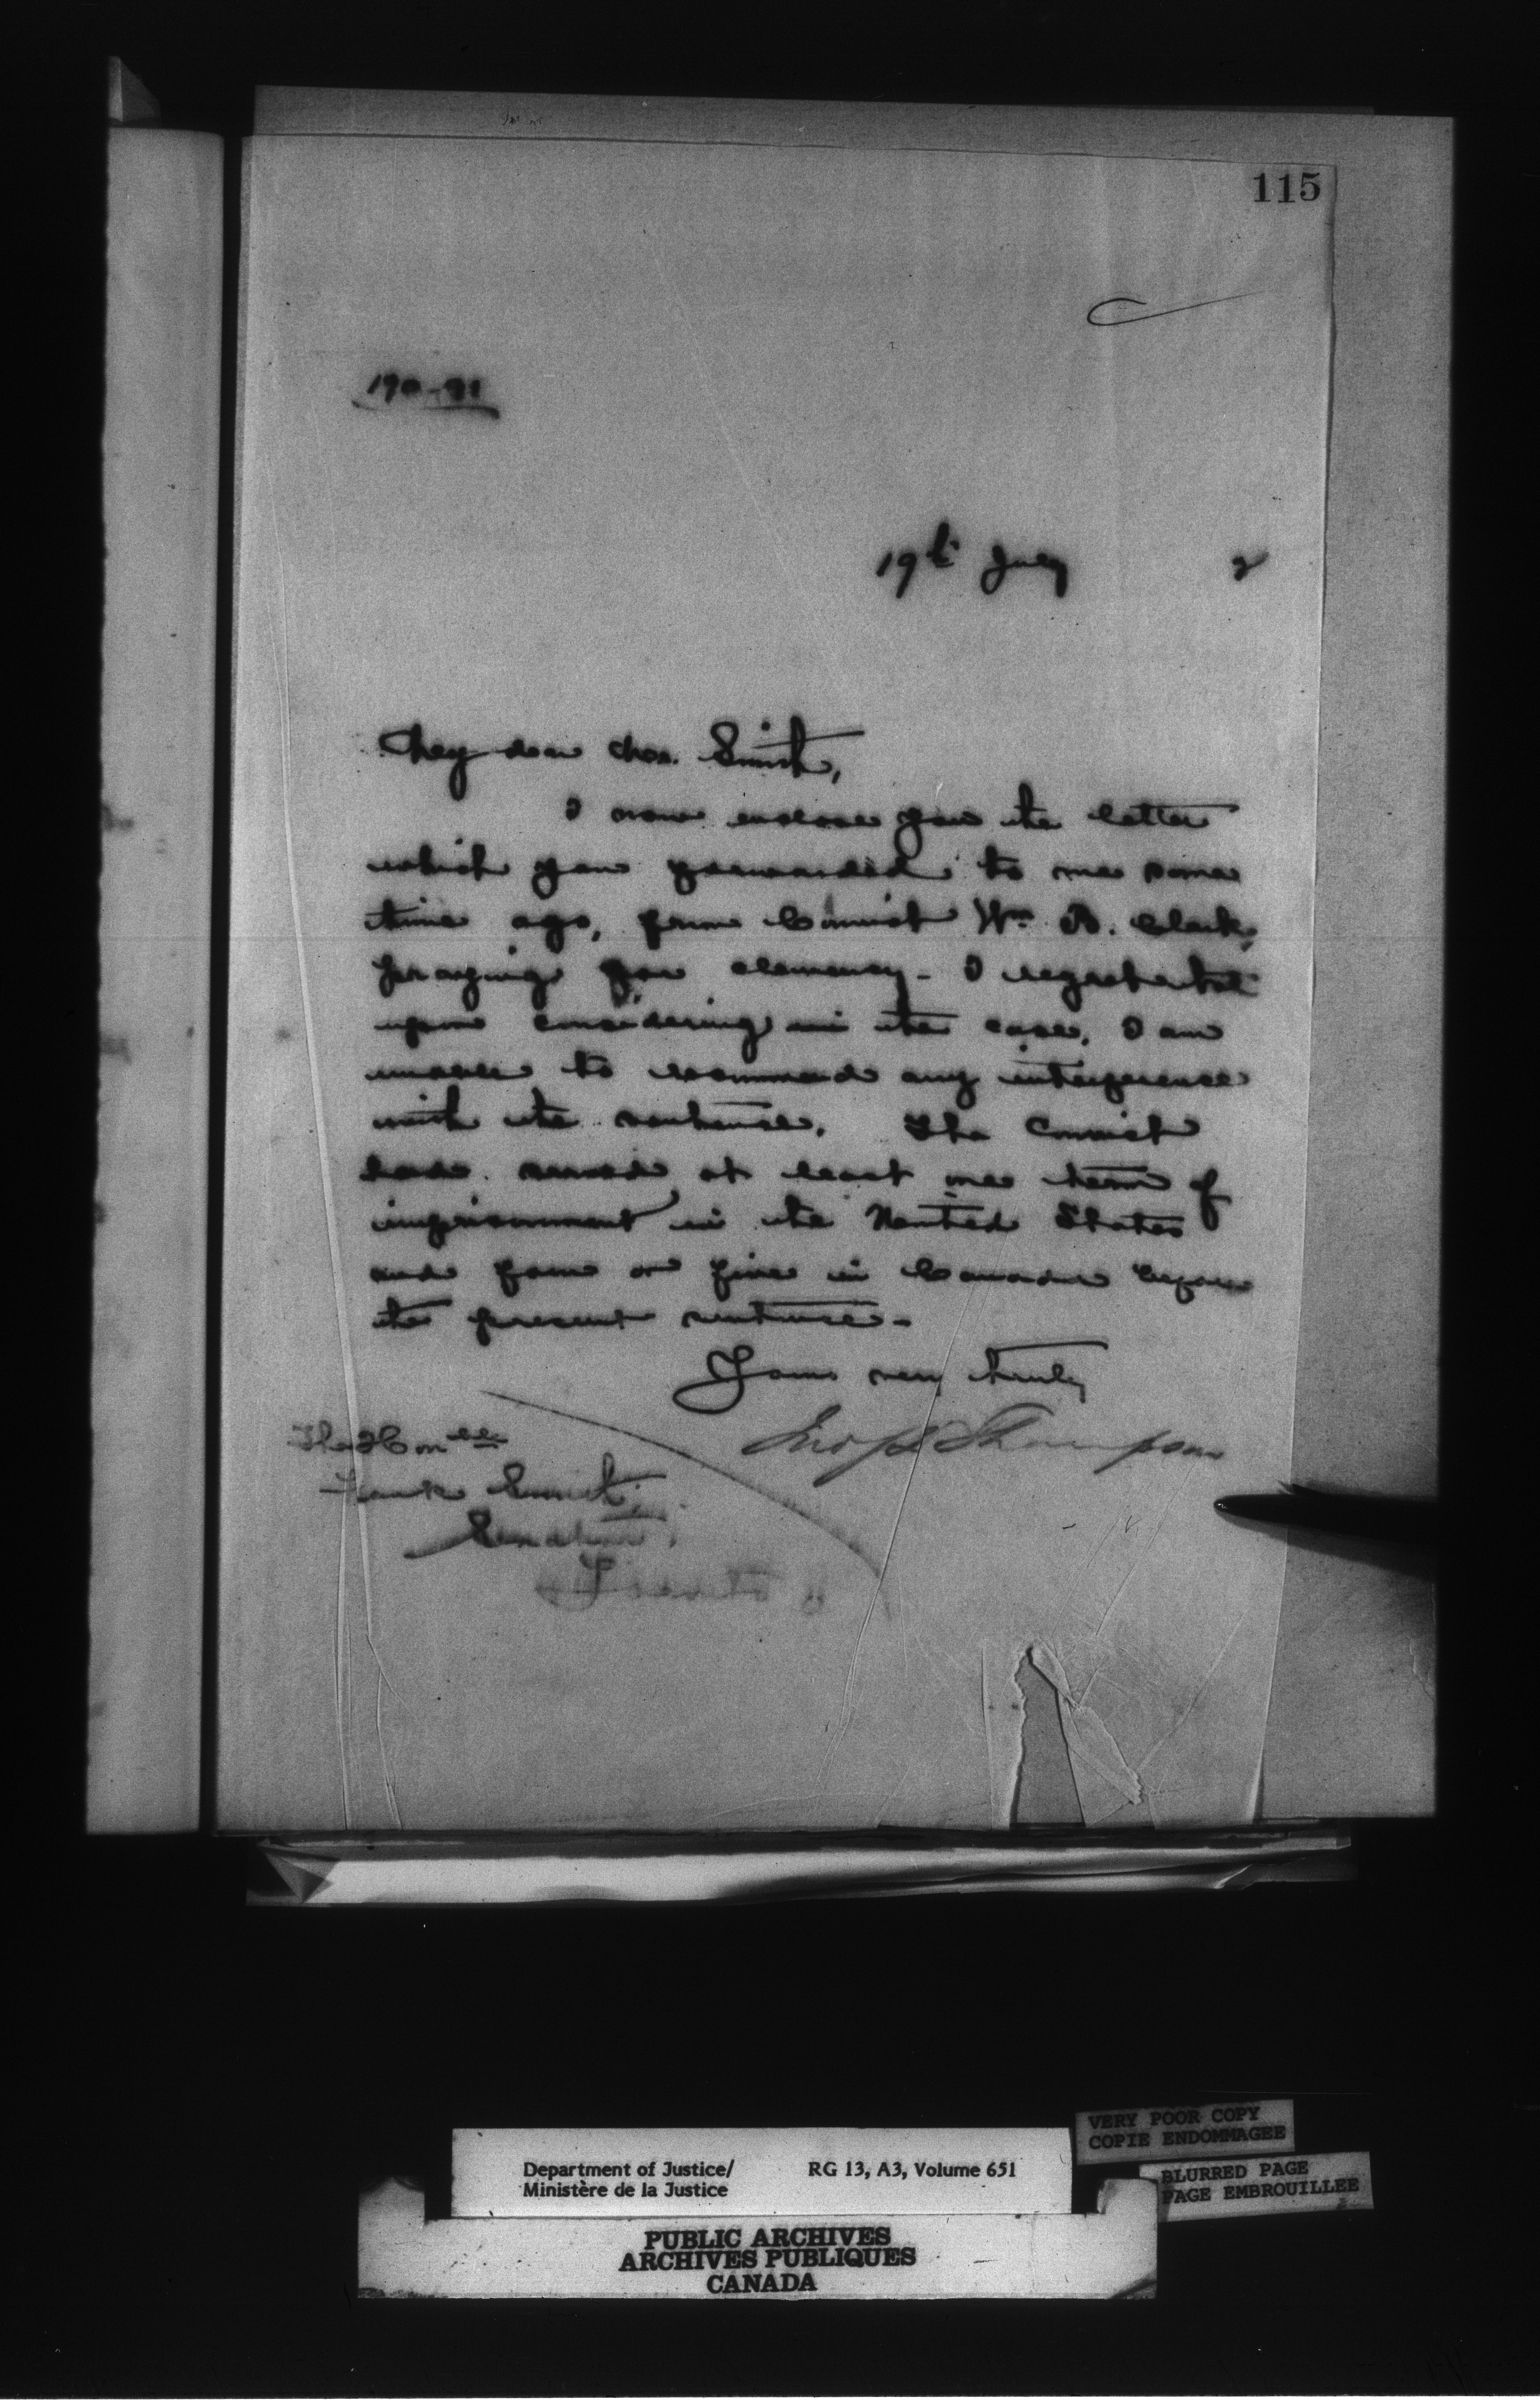 115
190-91
19th July 2
My dear Mr. Smith,
I now enclose you the letter
which you forwarded to me some
time ago, from Convict Wm. B. Clark,
praying for clemency - I regret that
upon considering the case, I am
unable to recommend any interference
with the sentence. The Convict
had served at least one term of
imprisonment in the United States
and four or five in Canada before
the present sentence -
Yours very truly
Jno S D Thompson
The Honble
Frank Smith,
Senator,
Toronto
VERY POOR COPY
COPIE ENDOMMAGEE
Department of Justice/ RG 13, A3, Volume 651
Ministère de la Justice
BLURRED PAGE
PAGE EMBROUILLEE
PUBLIC ARCHIVES
ARCHIVES PUBLIQUES
CANADA